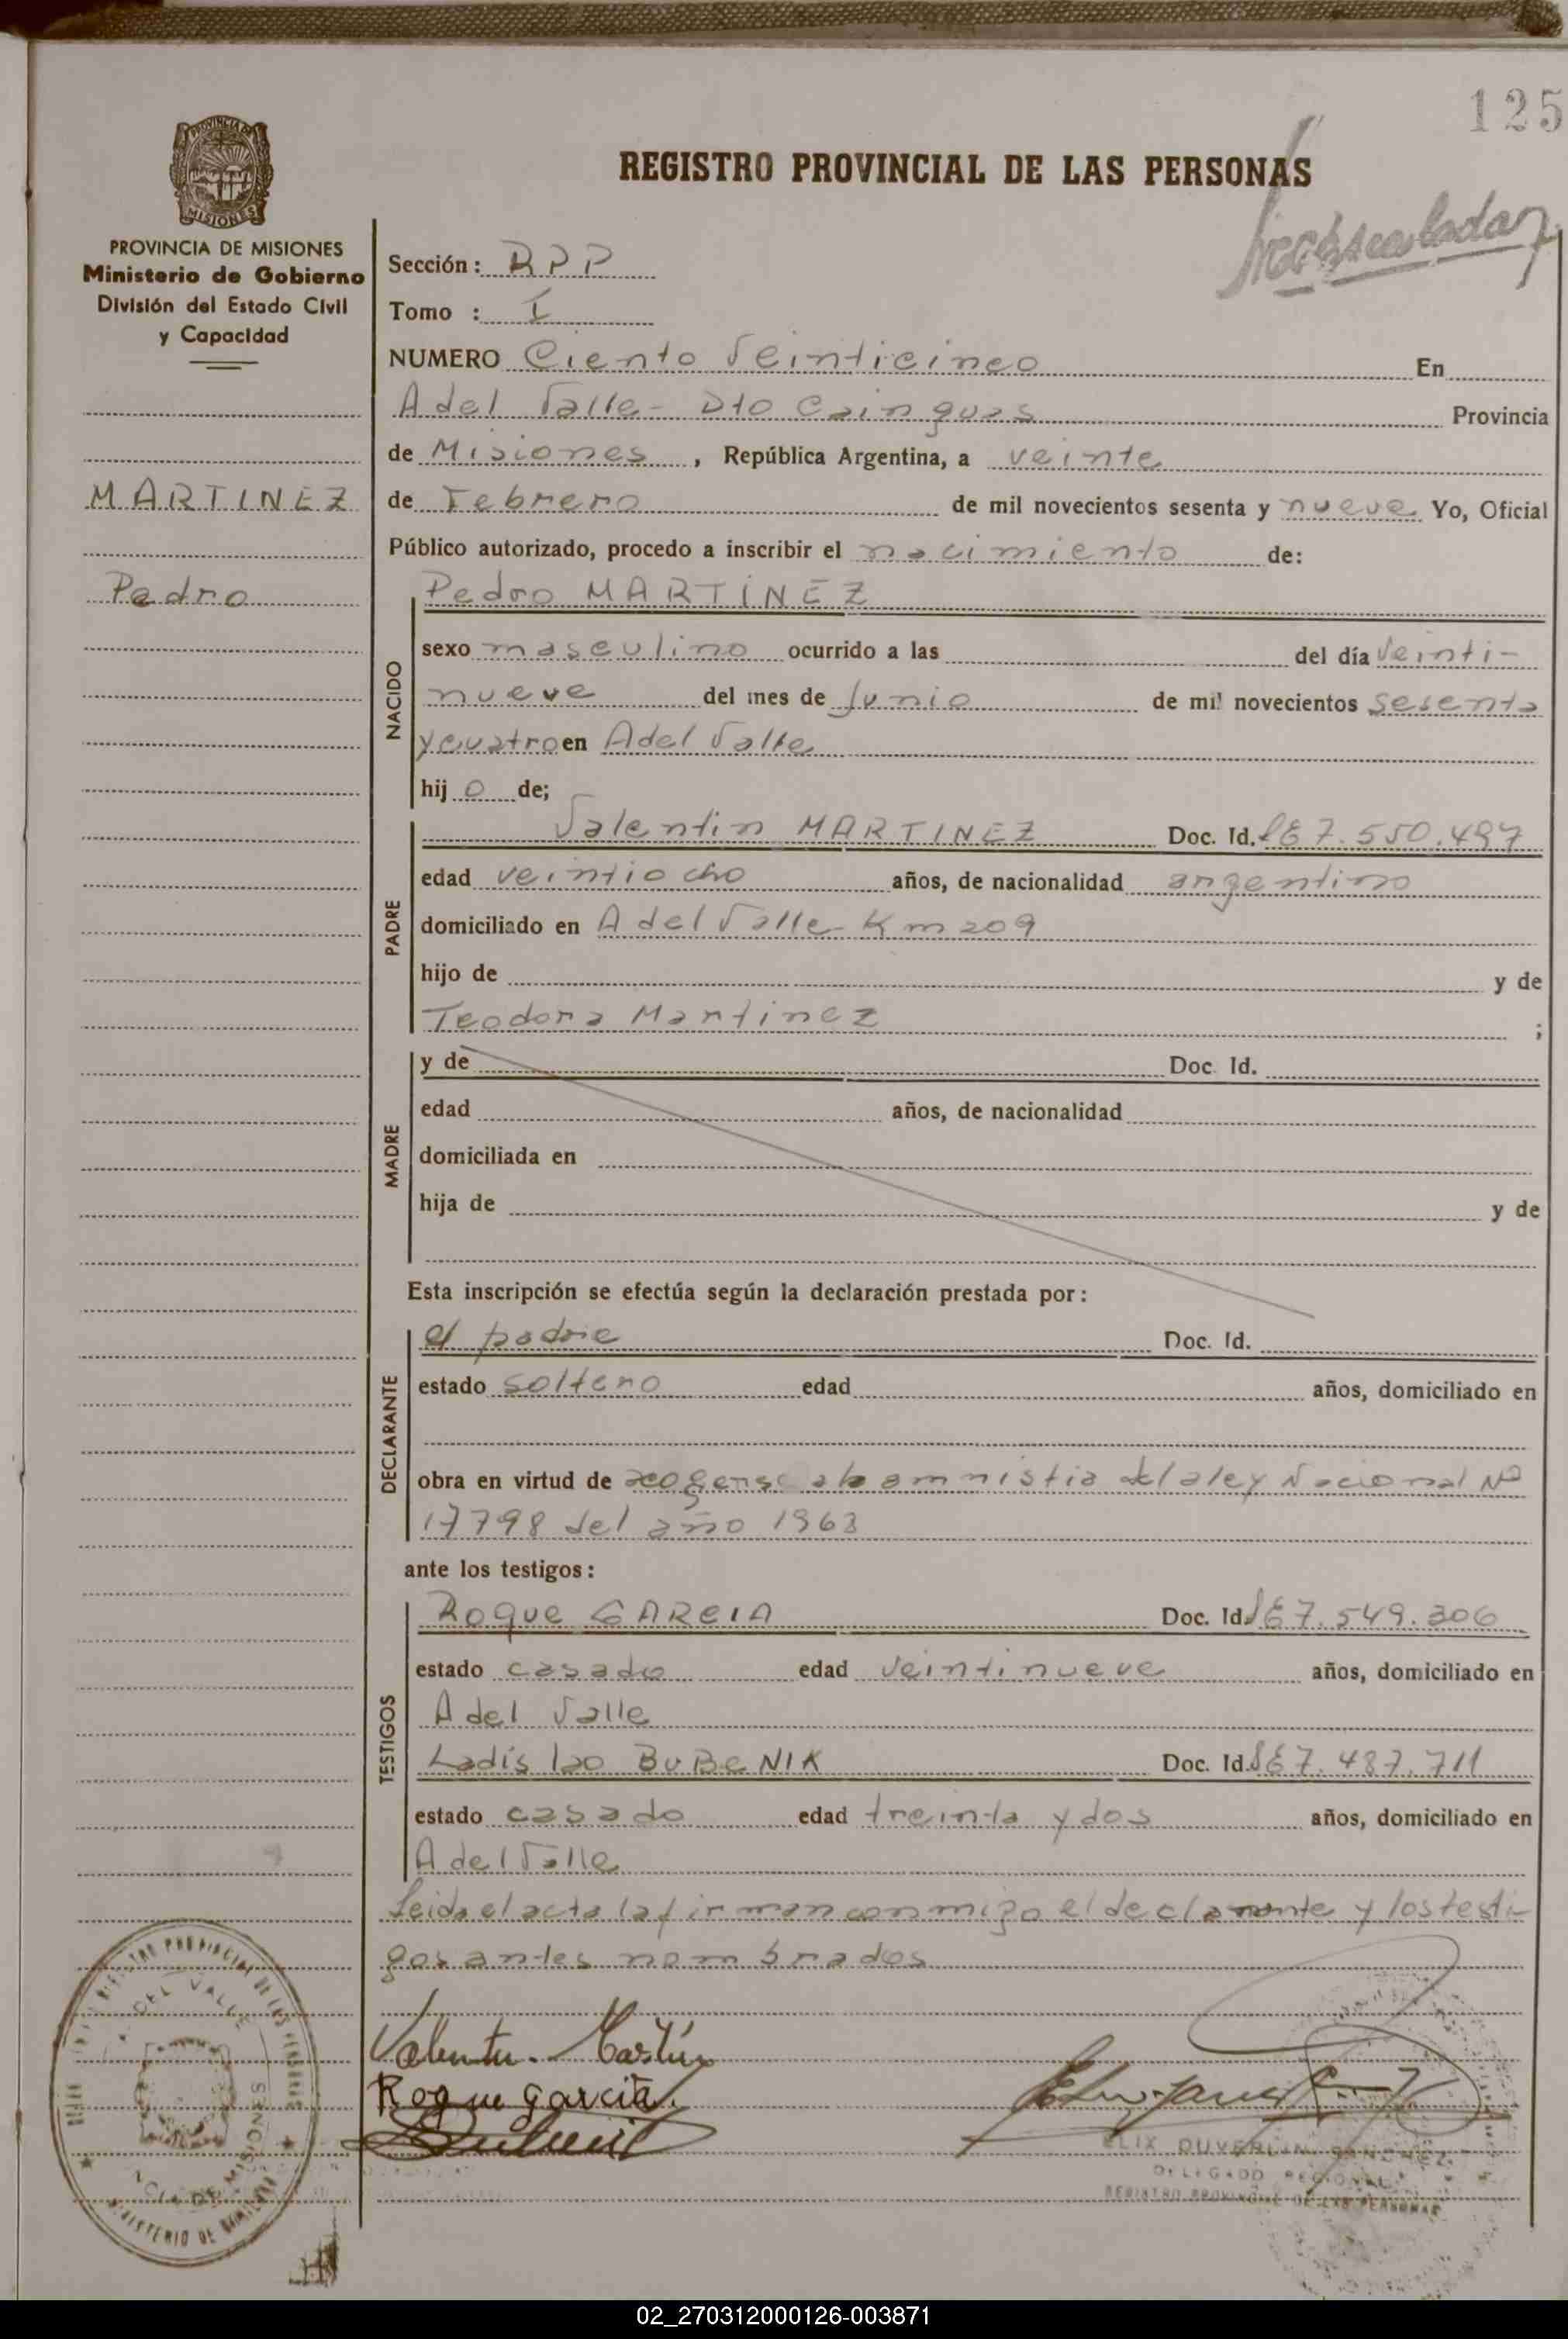 125
REGISTRO PROVINCIAL DE LAS PERSONAS
PROVINCIA DE MISIONES
Ministerio de Gobierno
División del Estado Civil
y Capacidad
MARTINEZ
Pedro
Sección: RPP
Tomo : I
NUMERO Ciento Veinticinco En
A del Valle - Dto Cainguas Provincia
de Misiones, República Argentina, a veinte
de Febrero de mil novecientos sesenta y nueve Yo, Oficial
Público autorizado, procedo a inscribir el nacimiento de:
NACIDO
Pedro MARTÍNEZ
sexo masculino ocurrido a las del día veinti-
nueve del mes de Junio de mil novecientos sesenta
y cuatro en A del Valle
hij o de;
PADRE
Valentin MARTINEZ Doc. Id. LE 7.550.497
edad veintiocho años, de nacionalidad argentino
domiciliado en A del Valle - Km 209
hijo de y de
Teodora Martinez ;
MADRE
y de Doc. Id.
edad años, de nacionalidad
domiciliada en
hija de y de
Esta inscripción se efectúa según la declaración prestada por:
DECLARANTE
el padre Doc. Id.
estado soltero edad años, domiciliado en
obra en virtud de acogerse a la amnistia de la ley Nacional Nº
17798 del año 1968
ante los testigos:
TESTIGOS
Roque GARCIA Doc. Id. LE 7.549.306
estado casado edad veintinueve años, domiciliado en
A del Valle
Ladislao BUBENIK Doc. Id. LE 7.487.711
estado casado edad treinta y dos años, domiciliado en
A del Valle
Leida el acta la firman conmigo el declarante y los testi-
gos antes nombrados
Roque Garcia
DELEGADO REGIONAL
REGISTRO PROVINCIAL DE LAS PERSONAS
02_270312000126-003871